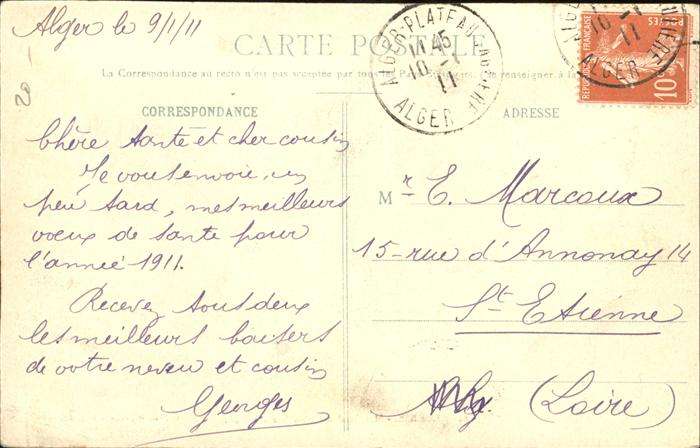 Alger le 9/1/11
CARTE POSTALE
La Correspondance au recto n'est pas acceptée par tous les Pays Se renseigner à la
ALGER-PLATEAU-SAULIERE
11 45
10 -1
11
ALGER
10 -1
11
ALGER
REPUBLIQUE FRANÇAISE
POSTES
10
20
CORRESPONDANCE
Chère tante et cher cousin
Je vous envoie, un
peu tard, mes meilleurs
voeux de santé pour
l'année 1911.
Recevez tous deux
les meilleurs baisers
de votre neveu et cousin
Georges
ADRESSE
Mr E. Marcoux
15-rue d'Annonay 14
St Etienne
(Loire)